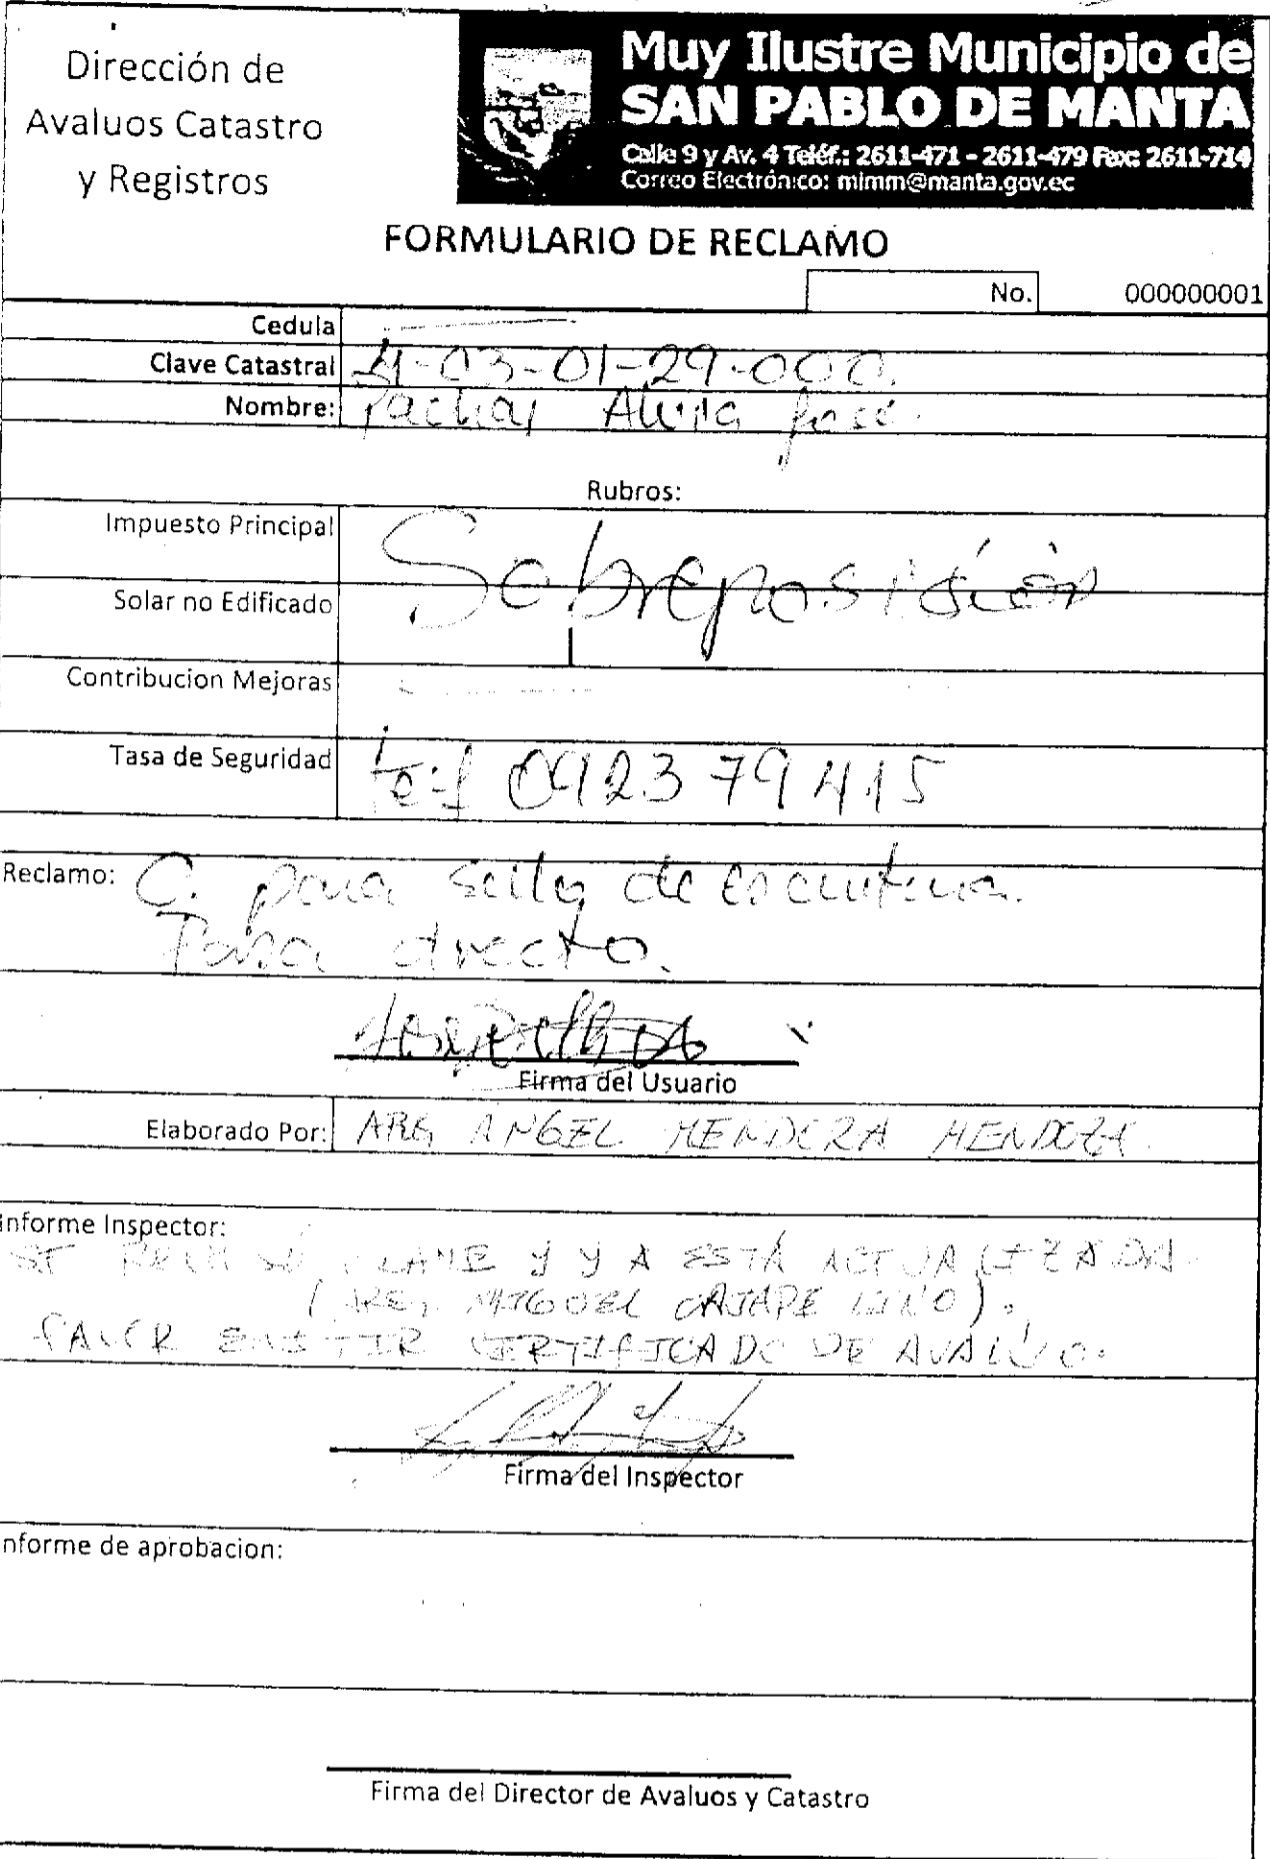 Dirección de
Avaluos Catastro
y Registros
Muy Ilustre Municipio de
SAN PABLO DE MANTA
Calle 9 y Av. 4 Teléf.: 2611-471 - 2611-479 Fax: 2611-714
Correo Electrónico: mimm@manta.gov.ec
FORMULARIO DE RECLAMO
No. 000000001
Cedula
Clave Catastral -03-01-29-000.
Nombre: Pachay Avila José.
Rubros:
Impuesto Principal
Sobreposición
Solar no Edificado
Contribucion Mejoras
Tasa de Seguridad Telf 092379415
Reclamo: C. para de escritura.
Para directo.
Firma del Usuario
Elaborado Por: ARQ ANGEL MENDOZA MENDOZA
informe Inspector:
CLAVE Y YA ESTÁ ACTUALIZADA
(ARQ. MIGUEL CAJAPE LINO).
FAVOR EMITIR CERTIFICADO DE AVALÚO.
Firma del Inspector
nforme de aprobacion:
Firma del Director de Avaluos y Catastro